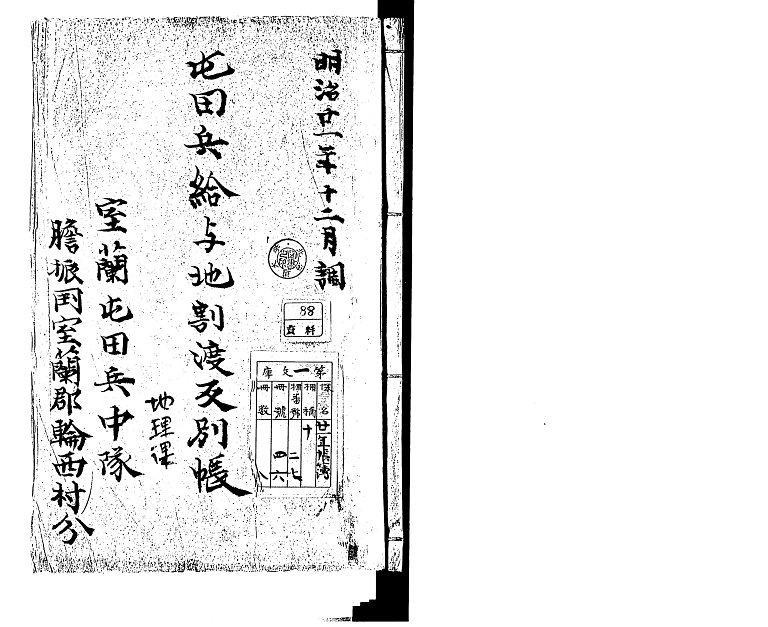 明治廿一年十二月調
屯田兵給与地割渡反別帳
室蘭屯田兵中隊
膽振国室蘭郡輪西村分
地理課
88
資料
第一文庫
課名
廿年帳簿
棚稱
十
棚番号
二七
冊號
四六
冊数